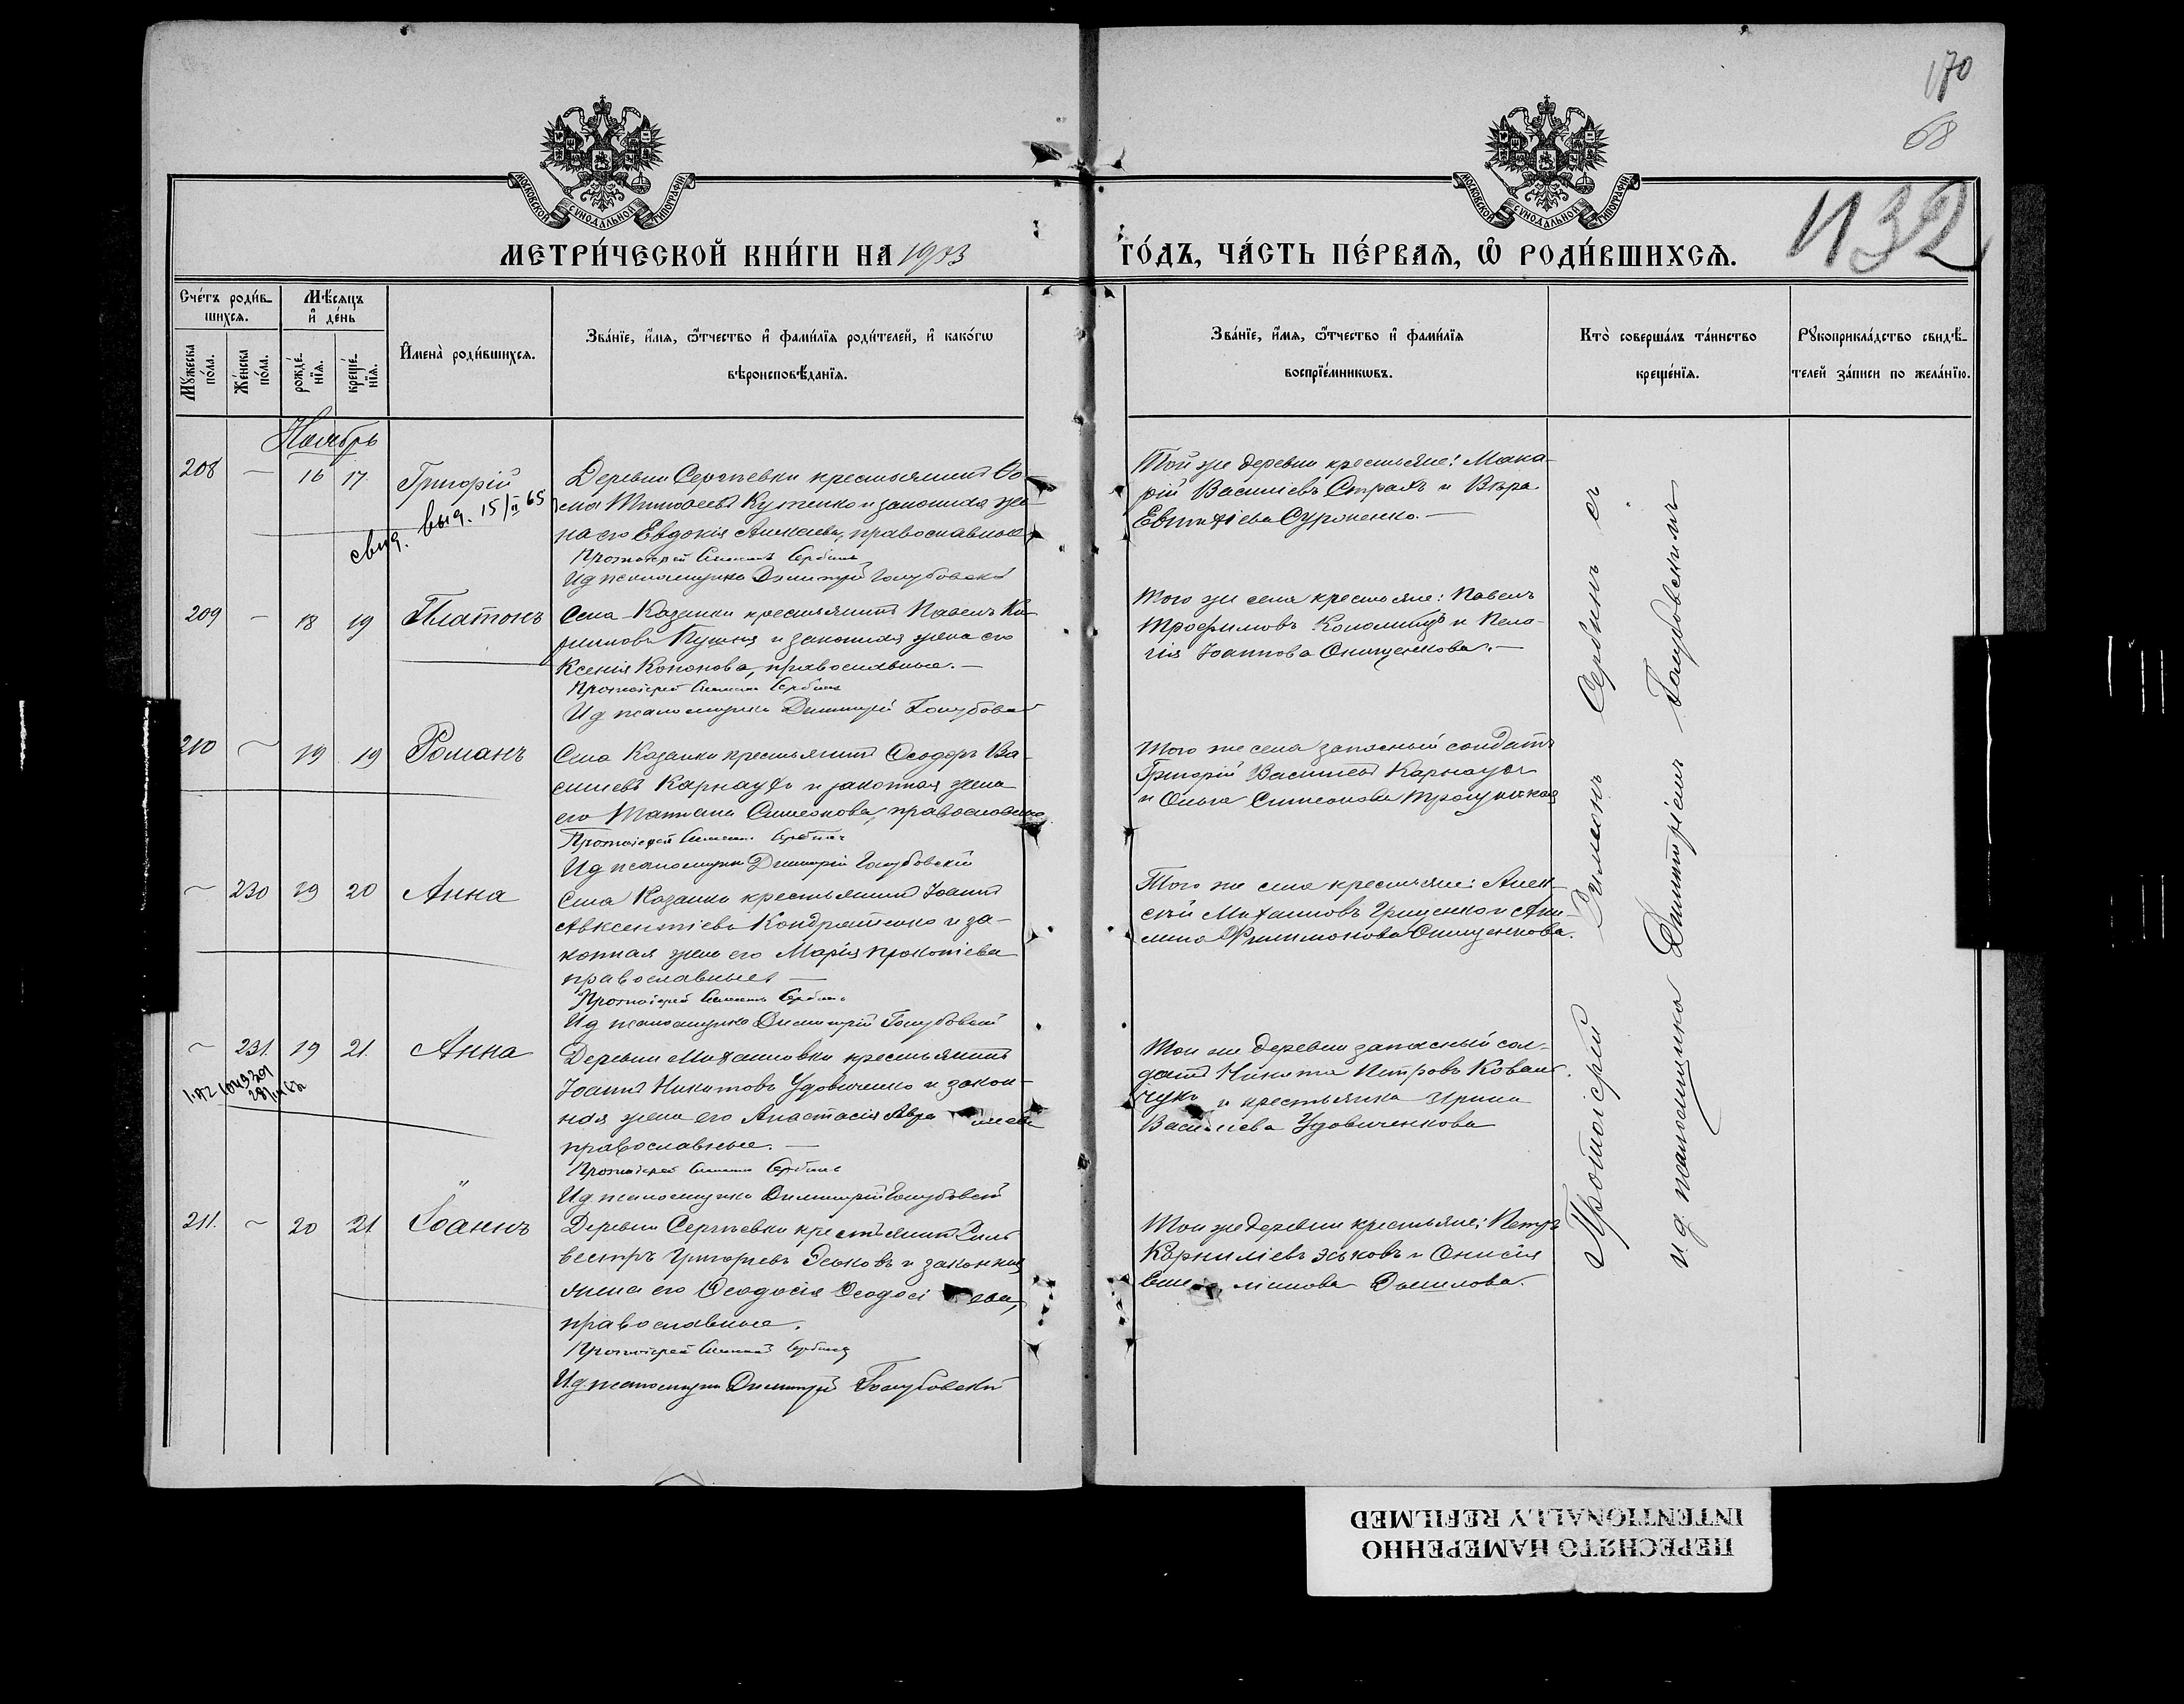 170
68
132
МОСКОВСКОЙ СѴНОДАЛЬНОЙ ТИПОГРАФІИ
МОСКОВСКОЙ СѴНОДАЛЬНОЙ ТИПОГРАФІИ
МЕТРИ́ЧЕСКОЙ КНИ́ГИ НА 1903 ГО́ДЪ, ЧА́СТЬ ПЕ́РВАѦ, Ѽ РОДИ́ВШИХСѦ.
Сче́тъ роди́в-
шихсѧ.
Мѣ́сѧцъ
и҆ де́нь
Мꙋ́жеска по́ла.
Же́нска по́ла.
рожде́-
нїѧ.
креще́-
нїѧ.
И҆мена̀ роди́вшихсѧ.
Зва́нїе, и҆́мѧ, ѻ҆́тчество и҆ фамѝлїѧ роди́телей, и҆ како́гѡ
вѣроисповѣ́данїѧ.
Зва́нїе, и҆́мѧ, ѻ҆́тчество и҆ фами́лїѧ
воспрїе́мникѡвъ.
Кто̀ соверша́лъ та́инство
креще́нїѧ.
Рꙋкоприкла́дство свидѣ́-
телей за́писи по жела́нїю.
Ноябрь
208 — 16 17. Григорій
свид. выд. 15/II 65
Деревни Сергѣевки крестьянинъ
и законная же-
на его Евдокія православные
Протоіерей Симеонъ Сербинъ
И д псаломщика Димитрій Голубовскій
Той же деревни крестьяне: Мака-
рій Васильевъ Страхъ и Вѣра
Евтихіева
209 — 18 19 Платонъ
Села Казанки крестьянинъ Павелъ
и законная жена его
Ксенія Кононова, православные. —
Протоіерей Симеонъ Сербинъ
И д псаломщика Димитрій Голубовскій
Того же села крестьяне: Павелъ
Трофимовъ Коломіецъ и Пела-
гія Іоаннова Онищенкова. —
210 — 19 19 Романъ
Села Казанки крестьянинъ Ѳеодоръ Ва-
сильевъ Карнаухъ и законная жена
его Татіана Симеонова, православные
Протоіерей Симеонъ Сербинъ
И д псаломщика Димитрій Голубовскій
Того же села запасный солдатъ
Григорій Васильевъ Карнаухъ
и Ольга Симеонова
— 230 19 20 Анна
Села Казанки крестьянинъ Іоаннъ
Авксентіевъ Кондратенко и за-
конная жена его Марія Прокопіева
православные —
Протоіерей Симеонъ Сербинъ
И д псаломщика Димитрій Голубовскій
Того же села крестьяне: Алек-
сѣй Михаиловъ Грищенко и
Филимонова Онищенкова.
— 231. 19 21. Анна
Деревни Михаиловки крестьянинъ
Іоаннъ Никитовъ Удовиченко и закон-
ная жена его Анастасія
православные. —
Протоіерей Симеонъ Сербинъ
И д псаломщика Димитрій Голубовскій
Той же деревни запасный сол-
датъ Никита Петровъ Коваль-
чукъ и крестьянка Ирина
Васильева Удовиченкова
211. — 20 21 Іоаннъ
Деревни Сергѣевки крестьянинъ Силь
вестръ Григорьевъ Эськовъ и законная
жена его Ѳеодосія Ѳеодосіева,
православные.
Протоіерей Симеонъ Сербинъ
И.д псаломщика Димитрій Голубовскій
Той же деревни крестьяне: Петръ
Корниліевъ Эськовъ и Онисія
Данилова.
Протоіерей Симеонъ Сербинъ съ
и. д. псаломщика Димитріемъ Голубовскимъ
ПЕРЕСНЯТО НАМЕРЕННО
INTENTIONALLY REFILMED